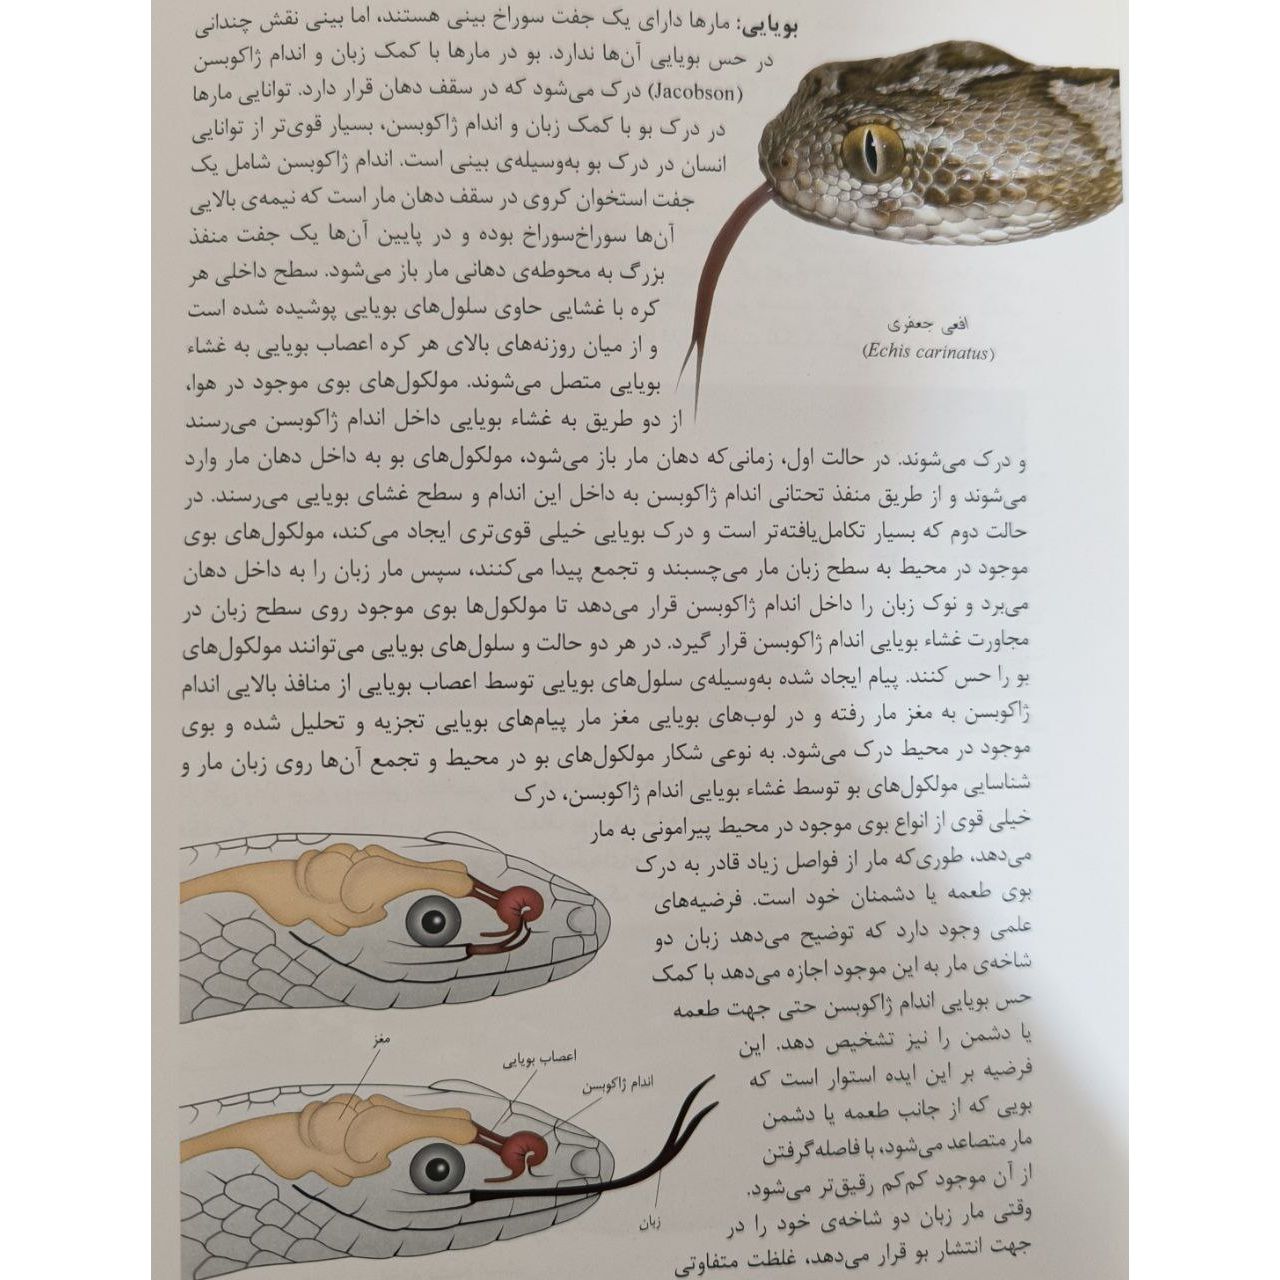 بویایی: مارها دارای یک جفت سوراخ بینی هستند، اما بینی نقش چندانی
در حس بویایی آن‌ها ندارد. بو در مارها با کمک زبان و اندام ژاکوبسن
(Jacobson) درک می‌شود که در سقف دهان قرار دارد. توانایی مارها
در درک بو با کمک زبان و اندام ژاکوبسن، بسیار قوی‌تر از توانایی
انسان در درک بو به‌وسیله‌ی بینی است. اندام ژاکوبسن شامل یک
جفت استخوان کروی در سقف دهان مار است که نیمه‌ی بالایی
آن‌ها سوراخ‌سوراخ بوده و در پایین آن‌ها یک جفت منفذ
بزرگ به محوطه‌ی دهانی مار باز می‌شود. سطح داخلی هر
کره با غشایی حاوی سلول‌های بویایی پوشیده شده است
و از میان روزنه‌های بالای هر کره اعصاب بویایی به غشاء
بویایی متصل می‌شوند. مولکول‌های بوی موجود در هوا،
از دو طریق به غشاء بویایی داخل اندام ژاکوبسن می‌رسند
افعی جعفری
(Echis carinatus)
و درک می‌شوند. در حالت اول، زمانی‌که دهان مار باز می‌شود، مولکول‌های بو به داخل دهان مار وارد
می‌شوند و از طریق منفذ تحتانی اندام ژاکوبسن به داخل این اندام و سطح غشای بویایی می‌رسند. در
حالت دوم که بسیار تکامل‌یافته‌تر است و درک بویایی خیلی قوی‌تری ایجاد می‌کند، مولکول‌های بوی
موجود در محیط به سطح زبان مار می‌چسبند و تجمع پیدا می‌کنند، سپس مار زبان را به داخل دهان
می‌برد و نوک زبان را داخل اندام ژاکوبسن قرار می‌دهد تا مولکول‌ها بوی موجود روی سطح زبان در
مجاورت غشاء بویایی اندام ژاکوبسن قرار گیرد. در هر دو حالت و سلول‌های بویایی می‌توانند مولکول‌های
بو را حس کنند. پیام ایجاد شده به‌وسیله‌ی سلول‌های بویایی توسط اعصاب بویایی از منافذ بالایی اندام
ژاکوبسن به مغز مار رفته و در لوب‌های بویایی مغز مار پیام‌های بویایی تجزیه و تحلیل شده و بوی
موجود در محیط درک می‌شود. به نوعی شکار مولکول‌های بو در محیط و تجمع آن‌ها روی زبان مار و
شناسایی مولکول‌های بو توسط غشاء بویایی اندام ژاکوبسن، درک
خیلی قوی از انواع بوی موجود در محیط پیرامونی به مار
می‌دهد، طوری‌که مار از فواصل زیاد قادر به درک
بوی طعمه یا دشمنان خود است. فرضیه‌های
علمی وجود دارد که توضیح می‌دهد زبان دو
شاخه‌ی مار به این موجود اجازه می‌دهد با کمک
حس بویایی اندام ژاکوبسن حتی جهت طعمه
یا دشمن را نیز تشخیص دهد. این
فرضیه بر این ایده استوار است که
بویی که از جانب طعمه یا دشمن
مار متصاعد می‌شود، با فاصله‌گرفتن
از آن موجود کم‌کم رقیق‌تر می‌شود.
وقتی مار زبان دو شاخه‌ی خود را در
جهت انتشار بو قرار می‌دهد، غلظت متفاوتی
مغز
اعصاب بویایی
اندام ژاکوبسن
زبان